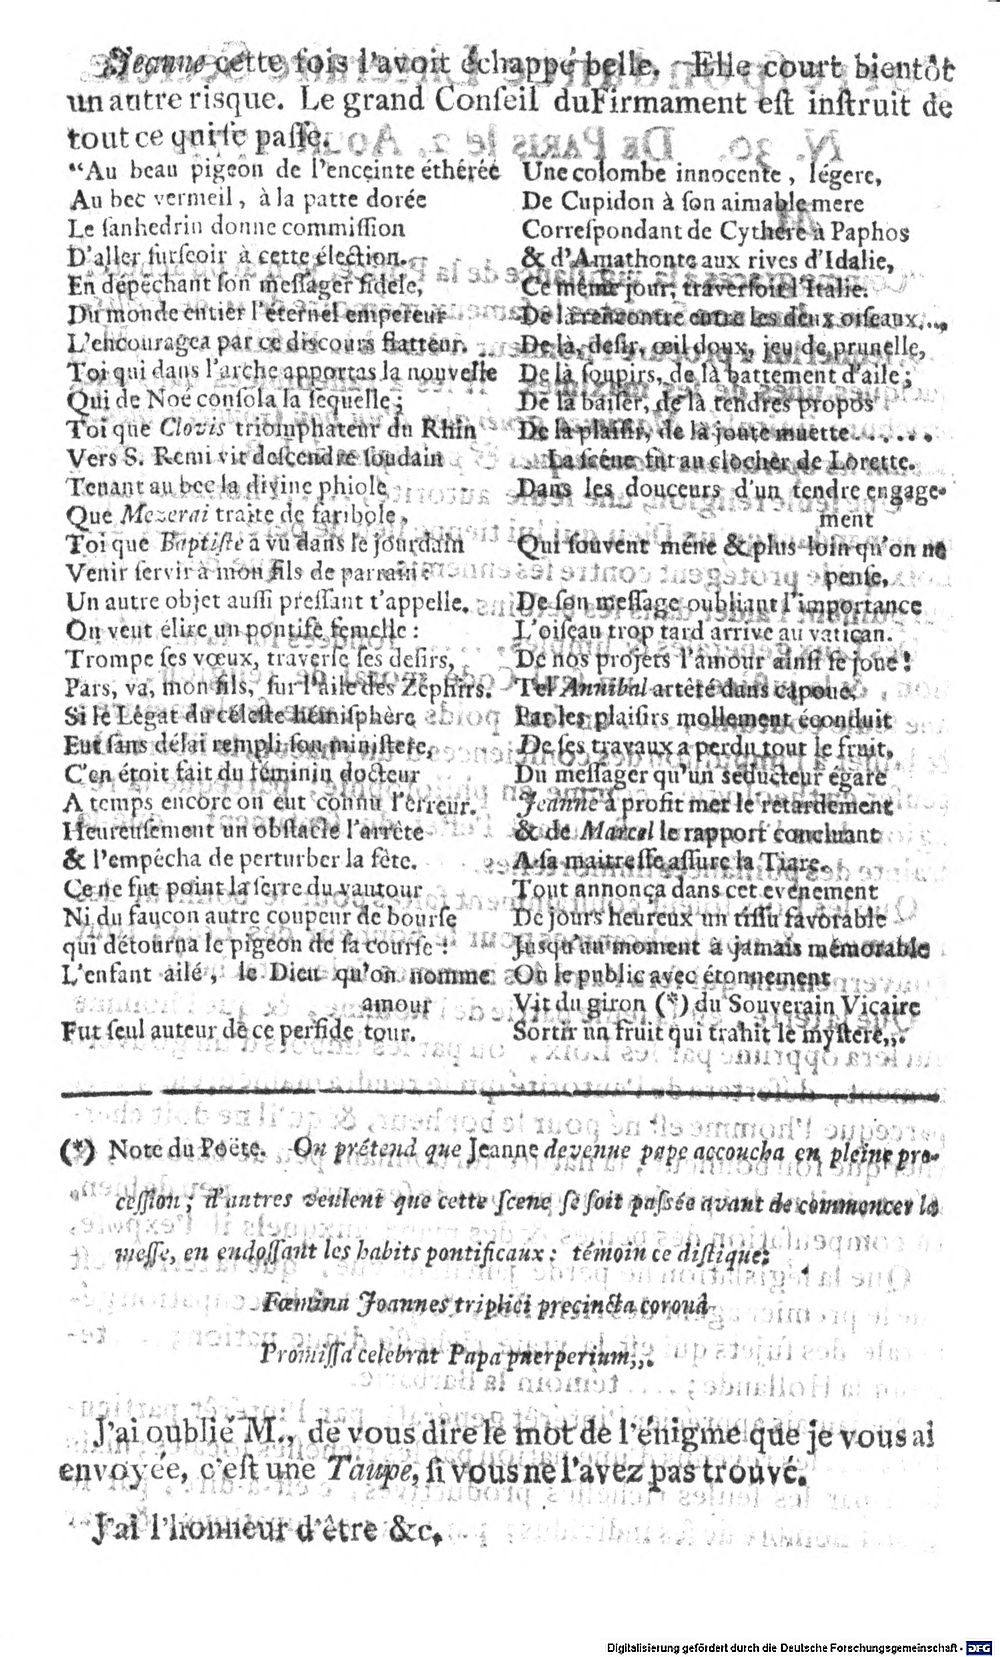 Jeanne cette fois l'avoit échappé belle. Elle court bientôt
un autre risque. Le grand Conſeil du Firmament eſt inſtruit de
tout ce qui ſe paſſe.
“Au beau pigeon de l'enceinte éthérée
Au bec vermeil, à la patte dorée
Le ſanhedrin donne commiſſion
D'aller ſurſeoir à cette élection.
En dépéchant ſon meſſager fidele,
Du monde entier l'éternel empereur
L'encouragea par ce diſcours flatteur.
Toi qui dans l'arche apportas la nouvelle
Qui de Noé conſola la ſequelle;
Toi que Clovis triomphateur du Rhin
Vers S. Remi vit deſcendre ſoudain
Tenant au bec la divine phiole
Que Mezerai traite de faribole,
Toi que Baptiſte a vu dans le jourdain
Venir ſervir à mon fils de parrain:
Un autre objet auſſi preſſant t'appelle.
On veut élire un pontife femelle:
Trompe ſes vœux, traverſe ſes deſirs,
Pars, va, mon fils, ſur l'aile des Zéphirs.
Si le Légat du céleſte hémiſphère
Eut ſans délai rempli ſon miniſtere,
C'en étoit fait du féminin docteur
A temps encore on eut connu l'erreur.
Heureuſement un obſtacle l'arrête
& l'empécha de perturber la fête.
Ce ne fut point la ſerre du vautour
Ni du faucon autre coupeur de bourſe
qui détourna le pigeon de ſa courſe!
L'enfant ailé, le Dieu qu'on nomme
amour
Fut ſeul auteur de ce perfide tour.
Une colombe innocente, légere,
De Cupidon à ſon aimable mere
Correſpondant de Cythere à Paphos
& d'Amathonte aux rives d'Idalie,
Ce même jour, traverſoit l'Italie.
De là rencontre entre les deux oiſeaux....
De là, deſir, œil doux, jeu de prunelle,
De là ſoupirs, de là battement d'aile;
De là baiſer, de là tendres propos
De là plaiſir, de là joute muette......
La ſcène fut au clocher de Lorette.
Dans les douceurs d'un tendre engage-
ment
Qui ſouvent mène & plus loin qu'on ne
penſe,
De ſon meſſage oubliant l'importance
L'oiſeau trop tard arrive au vatican.
De nos projets l'amour ainſi ſe joue!
Tel Annibal arrêté dans capoue,
Par les plaiſirs mollement éconduit
De ſes travaux a perdu tout le fruit,
Du meſſager qu'un ſeducteur égare
Jeanne à profit met le retardement
& de Marcel le rapport concluant
A ſa maitreſſe aſſure la Tiare.
Tout annonça dans cet evénement
De jours heureux un tiſſu favorable
Jusqu'au moment à jamais mémorable
Où le public avec étonnement
Vit du giron (*) du Souverain Vicaire
Sortir un fruit qui trahit le myſtere,,.
(*) Note du Poëte. On prétend que Jeanne devenue pape accoucha en pleine pro-
ceſſion; d'autres veulent que cette ſcene ſe ſoit paſsée avant de commencer la
meſſe, en endoſſant les habits pontificaux: témoin ce diſtique:
Fœmina Joannes triplici precincta coronâ
Promiſſa celebrat Papa puerperium,,.
J'ai oublié M., de vous dire le mot de l'énigme que je vous ai
envoyée, c'eſt une Taupe, ſi vous ne l'avez pas trouvé.
J'ai l'honneur d'être &c.
Digitalisierung gefördert durch die Deutsche Forschungsgemeinschaft - DFG